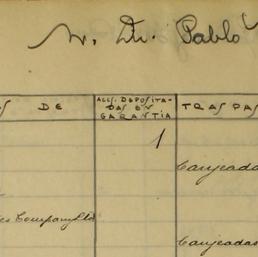 Dr. Pablo
S DE
ACCS. DEPOSITA-
DAS EN
GARANTIA
TRASPAS
1
Canjeadas
Company Ltd
Canjeadas